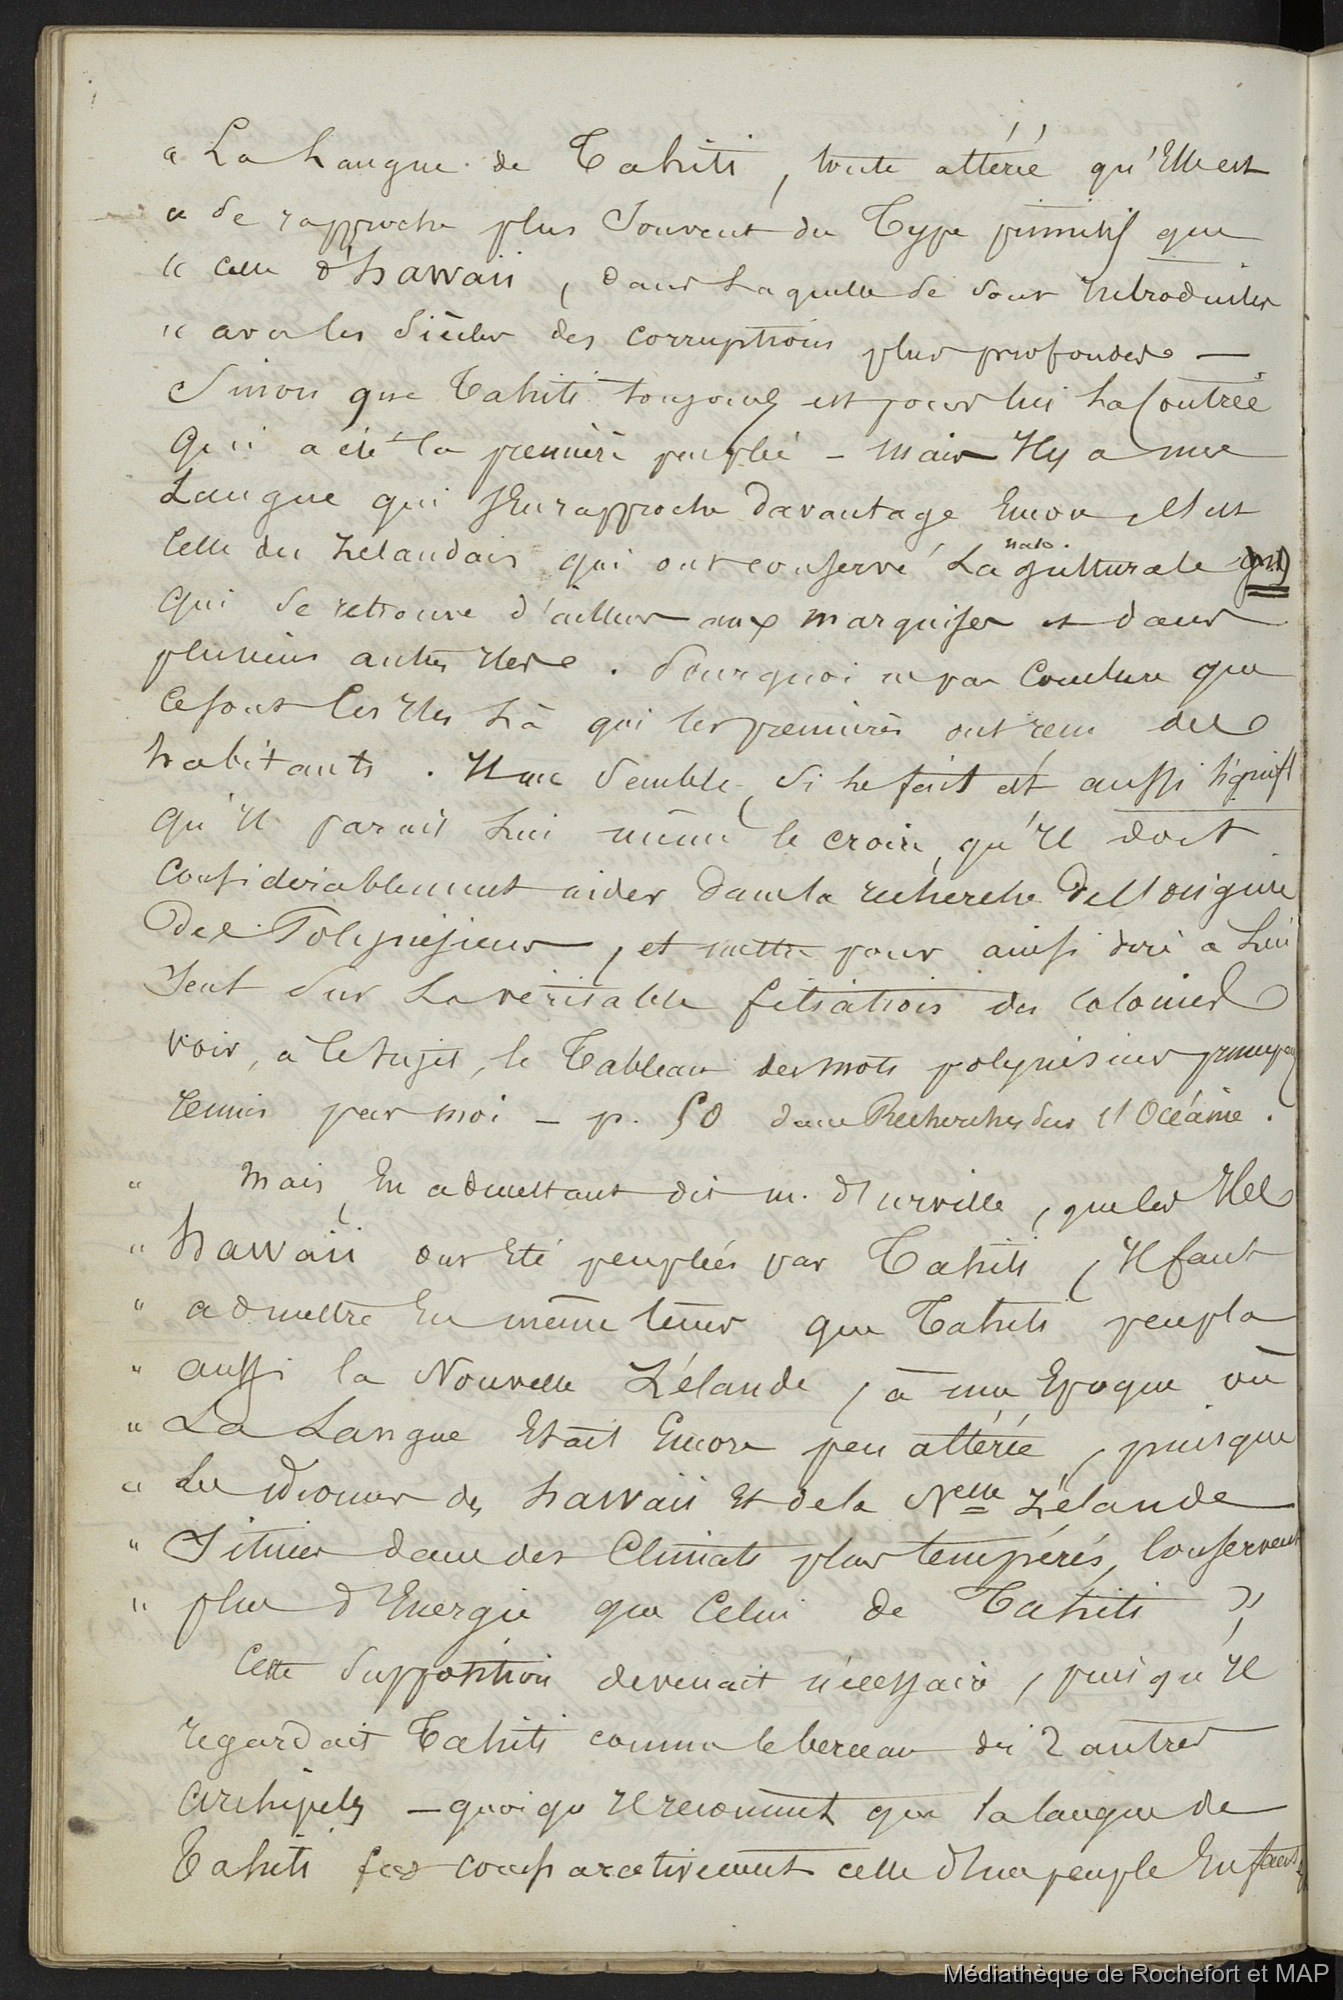 « La Langue de Tahiti, toute altérée qu'Elle est
« se rapproche plus souvent du Type primitif que
« celle d'hawaii, dans Laquelle se sont Introduites
« avec les siècles des corruptions plus profondes —
Sinon que Tahiti toujours est pour lui La Contrée
qui a été la première peuplée – mais Il y a une
Langue qui s'En rapproche davantage Encore, c'est
celle des Zélandais qui ont conservé La gutturale
naso.
qui se retrouve d'ailleurs aux marquises et dans
plusieurs autres Iles. Pourquoi ne pas Conclure que
ce sont les Iles Là qui les premières ont reçu des
habitants. Il me semble, si le fait est aussi signift
qu'Il parait Lui même le croire, qu'Il doit
considérablement aider dans la recherche de l'origine
Des Polynésiens, et mettre pour ainsi dire à Lui
seul sur La véritable filiation des colonies
voir, à ce sujet, le Tableau des mots polynésiens principaux
réunis par moi – p. 50 dans Recherches sur l'Océanie.
« Mais, En admettant dit m. d'urville, que les Iles
« hawaii ont Eté peuplées par Tahiti, Il faut
« admettre En même temps que Tahiti peupla
« aussi la Nouvelle Zélande, à une Epoque où
« La Langue Etait Encore peu altérée, puisque
« Les Idiomes des hawaii Et de la Nelle Zélande
« Situées dans des Climats plus tempérés, Conservent
« plus d'Energie que Celui de Tahiti »
Cette supposition devenait nécessaire, puisqu'Il
regardait Tahiti comme le berceau des 2 autres
archipels – quoiqu'Il reconnut que la langue de
Tahiti fut comparativement celle d'un peuple Enfant
Médiathèque de Rochefort et MAP